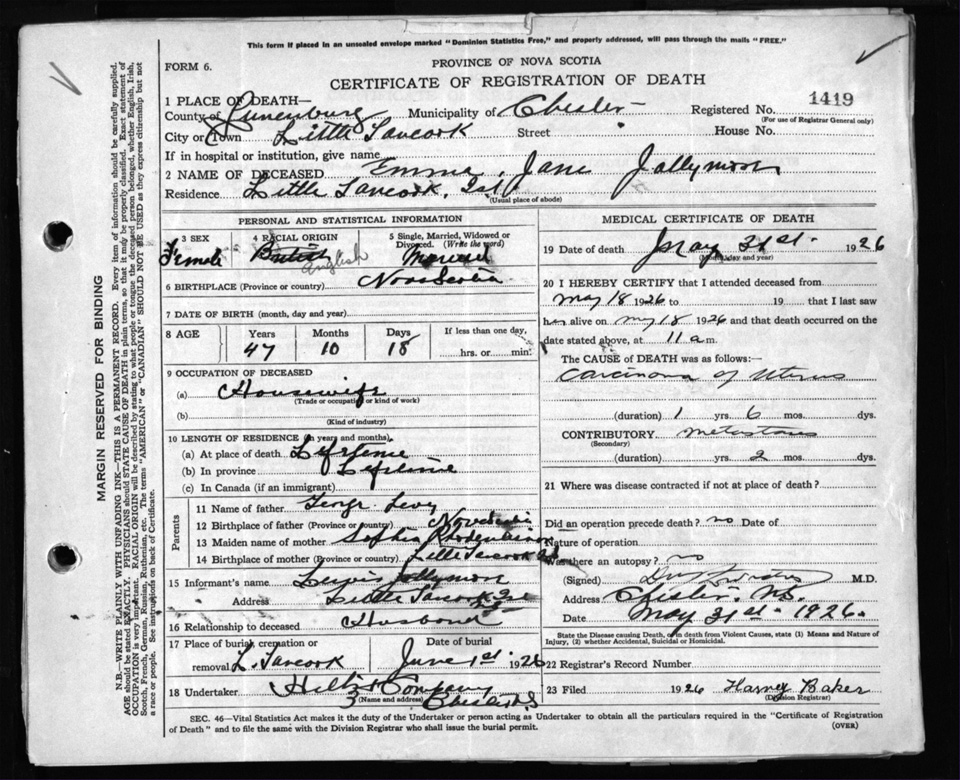 This form if placed in an unsealed envelope marked "Dominion Statistics Free," and properly addressed, will pass through the mails "FREE."
FORM 6.
PROVINCE OF NOVA SCOTIA
CERTIFICATE OF REGISTRATION OF DEATH
1 PLACE OF DEATH—
County of Lunenburg Municipality of Chester Registered No. 1419
(For use of Registrar General only)
City or Town Little Tancook Street House No.
If in hospital or institution, give name
2 NAME OF DECEASED Emma Jane Jollymore
Residence Little Tancook, Isl
(Usual place of abode)
PERSONAL AND STATISTICAL INFORMATION
3 SEX
Female
4 RACIAL ORIGIN
British
English
5 Single, Married, Widowed or Divorced. (Write the word)
Married
6 BIRTHPLACE (Province or country) Nova Scotia
7 DATE OF BIRTH (month, day and year)
8 AGE
Years Months Days If less than one day,
47 10 18 hrs. or min.
9 OCCUPATION OF DECEASED
(a) Housewife
(Trade or occupation or kind of work)
(b)
(Kind of industry)
10 LENGTH OF RESIDENCE (in years and months).
(a) At place of death Lifetime
(b) In province Lifetime
(c) In Canada (if an immigrant)
Parents
11 Name of father George Levy
12 Birthplace of father (Province or country) Nova Scotia
13 Maiden name of mother Sophia Rhodenizer
14 Birthplace of mother (Province or country) Little Tancook Isl
15 Informant's name Jollymore
Address Little Tancook Isl
16 Relationship to deceased Husband
17 Place of burial, cremation or Date of burial
removal L. Tancook June 1st 1926
18 Undertaker Company
(Name and address) Chester NS
MEDICAL CERTIFICATE OF DEATH
19 Date of death May 31st 1926
(Month, day and year)
20 I HEREBY CERTIFY that I attended deceased from
May 18 1926 to 19 that I last saw
her alive on May 18 1926 and that death occurred on the
date stated above, at 11 a m.
The CAUSE of DEATH was as follows:—
Carcinoma of Uterus
(duration) 1 yrs 6 mos. dys.
CONTRIBUTORY metastases
(Secondary)
(duration) yrs. 2 mos. dys.
21 Where was disease contracted if not at place of death?
Did an operation precede death? no Date of
Nature of operation
Was there an autopsy? no
(Signed) M.D.
Address Chester, N.S.
Date May 31st 1926.
State the Disease causing Death, or in death from Violent Causes, state (1) Means and Nature of Injury, (2) whether Accidental, Suicidal or Homicidal.
22 Registrar's Record Number
23 Filed 1926 Harvey Baker
(Division Registrar)
SEC. 46—Vital Statistics Act makes it the duty of the Undertaker or person acting as Undertaker to obtain all the particulars required in the "Certificate of Registration
of Death" and to file the same with the Division Registrar who shall issue the burial permit.
(OVER)
MARGIN RESERVED FOR BINDING
N.B.—WRITE PLAINLY WITH UNFADING INK—THIS IS A PERMANENT RECORD. Every item of information should be carefully supplied.
AGE should be stated EXACTLY. PHYSICIANS should STATE CAUSE OF DEATH in plain terms, so that it may be properly classified. Exact statement of
OCCUPATION is very important. RACIAL ORIGIN will be described by stating to what people or tongue the deceased person belonged, whether English, Irish,
Scotch, French, German, Russian, Ruthenian, etc. The terms "AMERICAN" or "CANADIAN" SHOULD NOT BE USED as they express citizenship but not
a race or people. See instructions on back of Certificate.